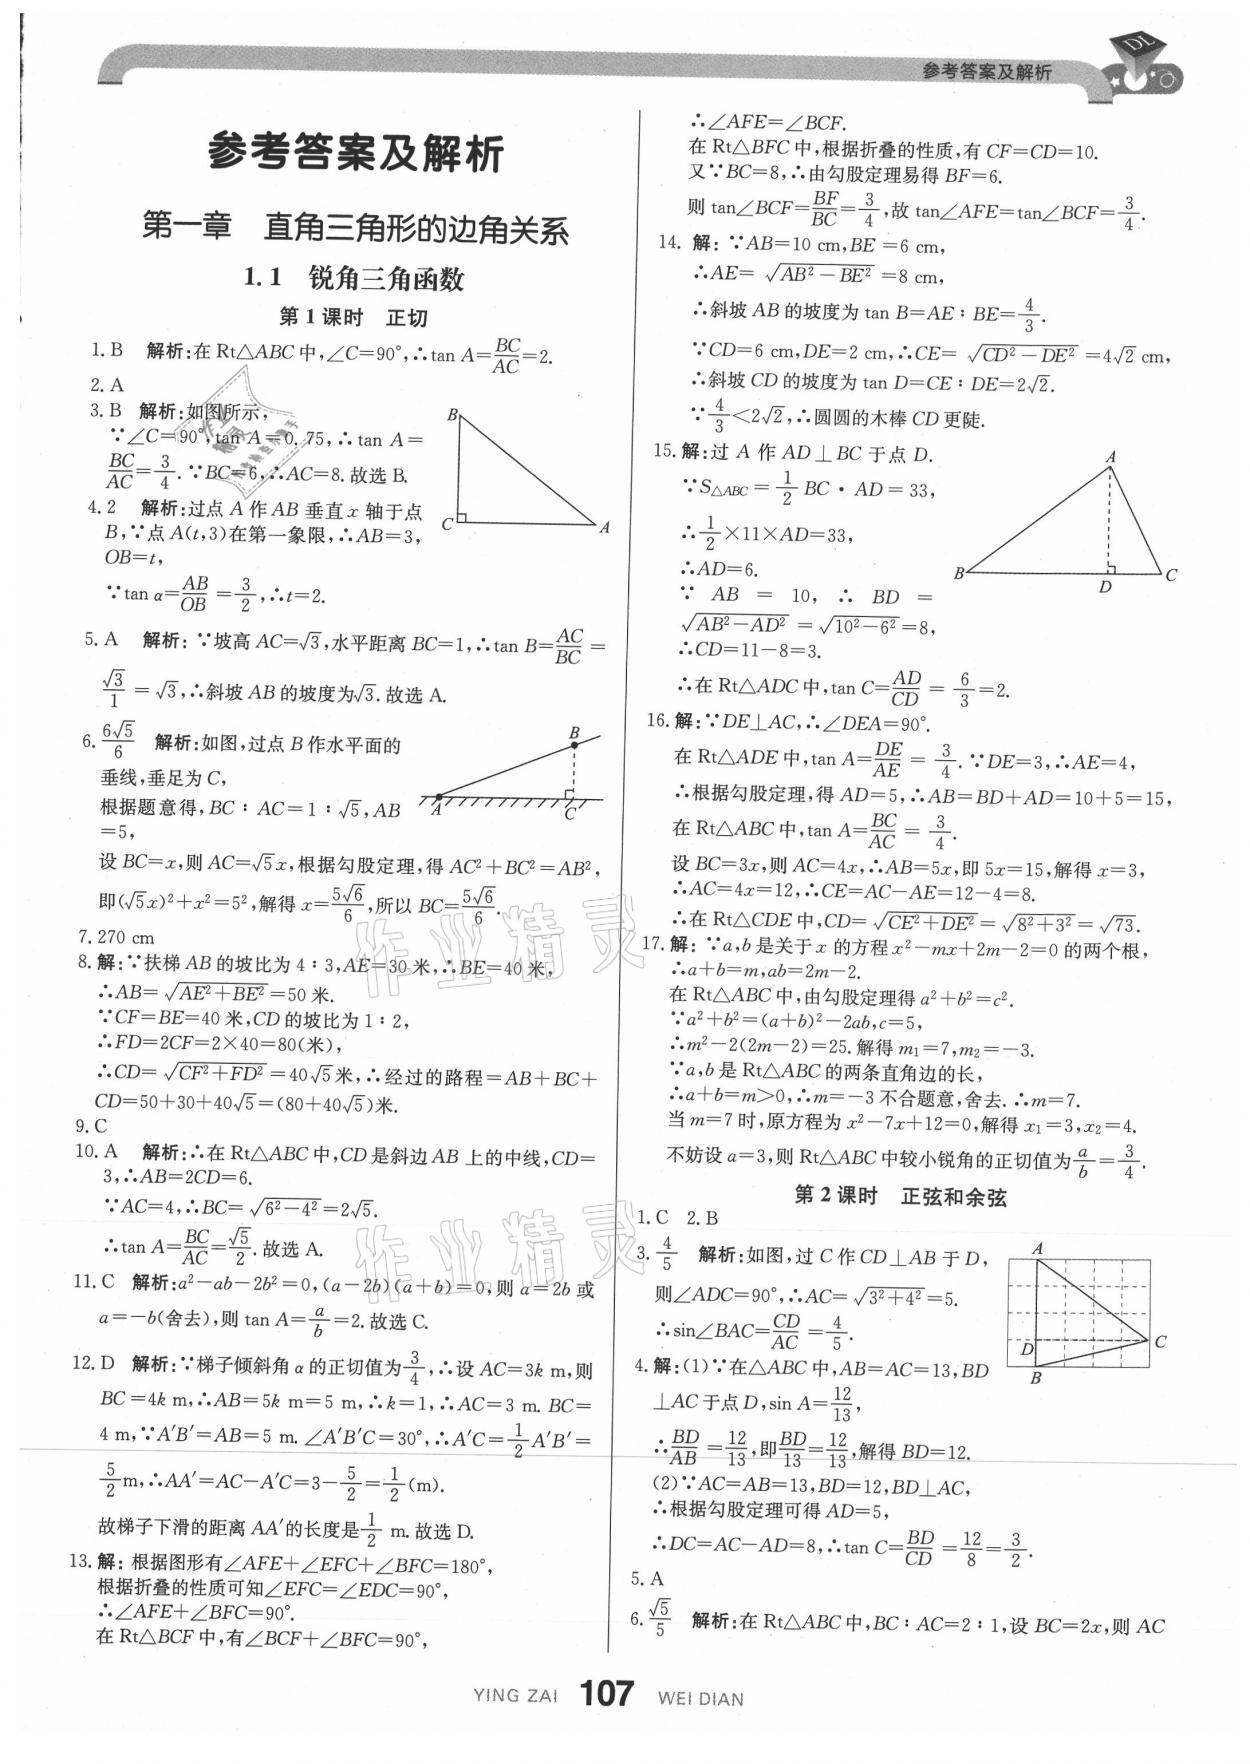 参考答案及解析
DL
参考答案及解析
第一章 直角三角形的边角关系
1.1 锐角三角函数
第1课时 正切
1. B 解析:在Rt△ABC中,∠C=90°,∴tan A=BC/AC=2.
2. A
3. B 解析:如图所示,
∵∠C=90°,tan A=0.75,∴tan A=
BC/AC=3/4.∵BC=6,∴AC=8.故选B.
B
C
A
4. 2 解析:过点A作AB垂直x轴于点
B,∵点A(t,3)在第一象限,∴AB=3,
OB=t,
∵tan α=AB/OB=3/2,∴t=2.
5. A 解析:∵坡高AC=√3,水平距离BC=1,∴tan B=AC/BC=
√3/1=√3,∴斜坡AB的坡度为√3.故选A.
6. 6√5/6 解析:如图,过点B作水平面的
垂线,垂足为C,
根据题意得,BC∶AC=1∶√5,AB
=5,
A
B
C
设BC=x,则AC=√5x,根据勾股定理,得AC²+BC²=AB²,
即(√5x)²+x²=5²,解得x=5√6/6,所以BC=5√6/6.
7. 270 cm
8. 解:∵扶梯AB的坡比为4∶3,AE=30米,∴BE=40米,
∴AB=√(AE²+BE²)=50米.
∵CF=BE=40米,CD的坡比为1∶2,
∴FD=2CF=2×40=80(米),
∴CD=√(CF²+FD²)=40√5米,∴经过的路程=AB+BC+
CD=50+30+40√5=(80+40√5)米.
9. C
10. A 解析:∴在Rt△ABC中,CD是斜边AB上的中线,CD=
3,∴AB=2CD=6.
∵AC=4,∴BC=√(6²-4²)=2√5.
∴tan A=BC/AC=√5/2.故选A.
11. C 解析:a²-ab-2b²=0,(a-2b)(a+b)=0,则a=2b或
a=-b(舍去),则tan A=a/b=2.故选C.
12. D 解析:∵梯子倾斜角α的正切值为3/4,∴设AC=3k m,则
BC=4k m,∴AB=5k m=5 m,∴k=1,∴AC=3 m. BC=
4 m,∵A′B′=AB=5 m. ∠A′B′C=30°,∴A′C=1/2A′B′=
5/2 m,∴AA′=AC-A′C=3-5/2=1/2(m).
故梯子下滑的距离AA′的长度是1/2 m.故选D.
13. 解:根据图形有∠AFE+∠EFC+∠BFC=180°,
根据折叠的性质可知∠EFC=∠EDC=90°,
∴∠AFE+∠BFC=90°.
在Rt△BCF中,有∠BCF+∠BFC=90°,
∴∠AFE=∠BCF.
在Rt△BFC中,根据折叠的性质,有CF=CD=10.
又∵BC=8,∴由勾股定理易得BF=6.
则tan∠BCF=BF/BC=3/4,故tan∠AFE=tan∠BCF=3/4.
14. 解:∵AB=10 cm,BE=6 cm,
∴AE=√(AB²-BE²)=8 cm,
∴斜坡AB的坡度为tan B=AE∶BE=4/3.
∵CD=6 cm,DE=2 cm,∴CE=√(CD²-DE²)=4√2 cm,
∴斜坡CD的坡度为tan D=CE∶DE=2√2.
∵4/3<2√2,∴圆圆的木棒CD更陡.
15. 解:过A作AD⊥BC于点D.
∵S△ABC=1/2BC·AD=33,
∴1/2×11×AD=33,
∴AD=6.
∵AB=10,∴BD=
√(AB²-AD²)=√(10²-6²)=8,
∴CD=11-8=3.
∴在Rt△ADC中,tan C=AD/CD=6/3=2.
A
B
D
C
16. 解:∵DE⊥AC,∴∠DEA=90°.
在Rt△ADE中,tan A=DE/AE=3/4.∵DE=3,∴AE=4,
∴根据勾股定理,得AD=5,∴AB=BD+AD=10+5=15,
在Rt△ABC中,tan A=BC/AC=3/4.
设BC=3x,则AC=4x,∴AB=5x,即5x=15,解得x=3,
∴AC=4x=12,∴CE=AC-AE=12-4=8.
∴在Rt△CDE中,CD=√(CE²+DE²)=√(8²+3²)=√73.
17. 解:∵a,b是关于x的方程x²-mx+2m-2=0的两个根,
∴a+b=m,ab=2m-2.
在Rt△ABC中,由勾股定理得a²+b²=c².
∵a²+b²=(a+b)²-2ab,c=5,
∴m²-2(2m-2)=25.解得m₁=7,m₂=-3.
∵a,b是Rt△ABC的两条直角边的长,
∴a+b=m>0,∴m=-3不合题意,舍去.∴m=7.
当m=7时,原方程为x²-7x+12=0,解得x₁=3,x₂=4.
不妨设a=3,则Rt△ABC中较小锐角的正切值为a/b=3/4.
第2课时 正弦和余弦
1. C 2. B
3. 4/5 解析:如图,过C作CD⊥AB于D,
则∠ADC=90°,∴AC=√(3²+4²)=5.
∴sin∠BAC=CD/AC=4/5.
A
D
B
C
4. 解:(1)∵在△ABC中,AB=AC=13,BD
⊥AC于点D,sin A=12/13,
∴BD/AB=12/13,即BD/13=12/13,解得BD=12.
(2)∵AC=AB=13,BD=12,BD⊥AC,
∴根据勾股定理可得AD=5,
∴DC=AC-AD=8,∴tan C=BD/CD=12/8=3/2.
5. A
6. √5/5 解析:在Rt△ABC中,BC∶AC=2∶1,设BC=2x,则AC
YING ZAI 107 WEI DIAN
作业精灵
作业精灵